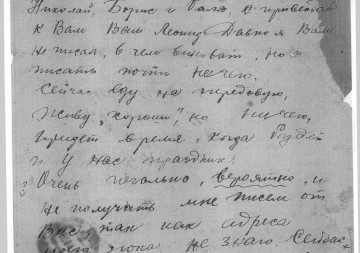 Николай, Борис и Галя, с приветом
к Вам Вам Леонид. Давно я Вам
не писал, в чем виноват, но я
писать почти нечего.
Сейчас еду на передовую,
живу „хорошо", но ничего,
придет время, когда будет
и у нас праздник.
Очень печально, вероятно, и
не получать мне писем от
Вас, так как адреса
не знаю. Сейчас